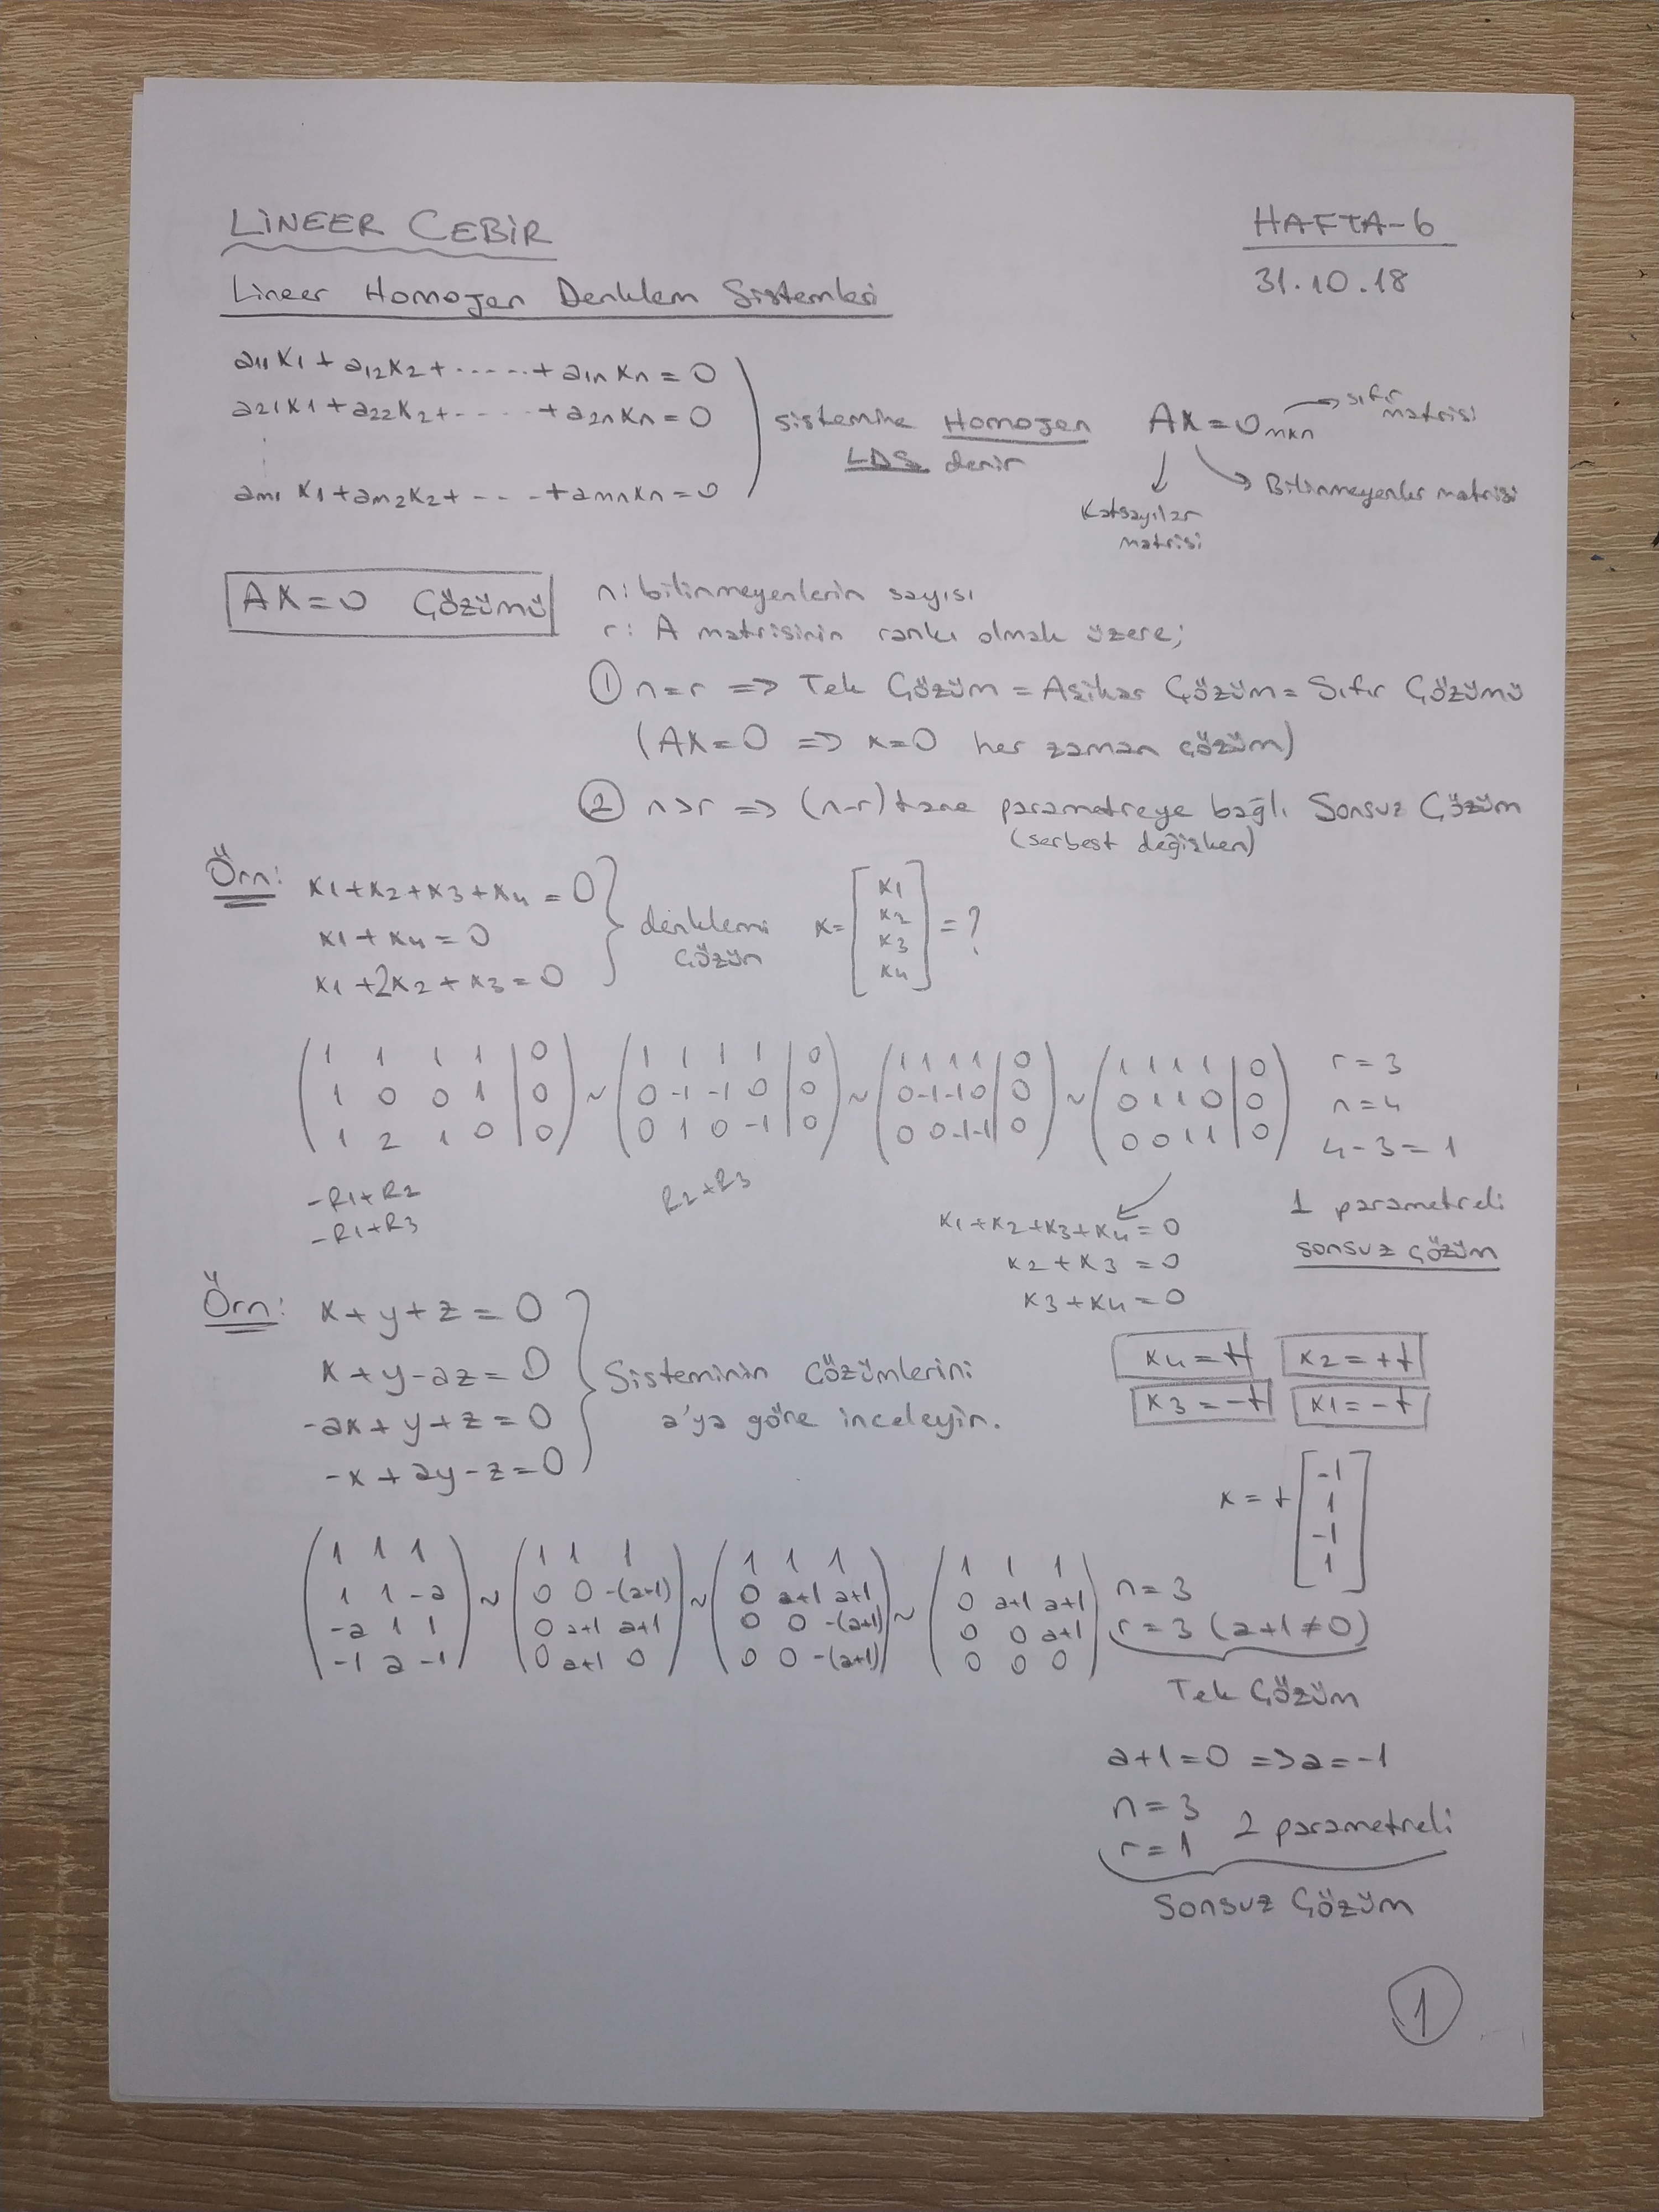 LİNEER CEBİR
HAFTA-6
31.10.18
Lineer Homojen Denklem Sistemleri
a11x1 + a12x2 + ..... + a1nxn = 0
a21x1 + a22x2 + .... + a2nxn = 0
am1x1 + am2x2 + ... + amnxn = 0
sistemine Homojen
LDS denir
AX = 0mxn → sıfır matrisi
Katsayılar matrisi
Bilinmeyenler matrisi
AX = 0 Çözümü
n: bilinmeyenlerin sayısı
r: A matrisinin rankı olmak üzere;
① n=r ⇒ Tek Çözüm = Aşikar Çözüm = Sıfır Çözümü
(AX=0 ⇒ x=0 her zaman çözüm)
② n>r ⇒ (n-r) tane parametreye bağlı Sonsuz Çözüm
(serbest değişken)
Örn: x1+x2+x3+x4 = 0
x1+x4=0
x1+2x2+x3=0
denklemi çözün
x = [x1 x2 x3 x4] = ?
(1 1 1 1 | 0) ~ (1 1 1 1 | 0) ~ (1 1 1 1 | 0) ~ (1 1 1 1 | 0) r=3
(1 0 0 1 | 0) (0 -1 -1 0 | 0) (0 -1 -1 0 | 0) (0 1 1 0 | 0) n=4
(1 2 1 0 | 0) (0 1 0 -1 | 0) (0 0 -1 -1 | 0) (0 0 1 1 | 0) 4-3=1
-R1+R2
-R1+R3
R2+R3
1 parametreli
sonsuz çözüm
x1+x2+x3+x4=0
x2+x3=0
x3+x4=0
x4=t
x3=-t
x2=+t
x1=-t
x = t [-1 1 -1 1]
Örn: x+y+z=0
x+y-az=0
-ax+y+z=0
-x+ay-z=0
Sisteminin Çözümlerini
a'ya göre inceleyin.
(1 1 1) ~ (1 1 1) ~ (1 1 1) ~ (1 1 1)
(1 1 -a) (0 0 -(a+1)) (0 a+1 a+1) (0 a+1 a+1)
(-a 1 1) (0 a+1 a+1) (0 0 -(a+1)) (0 0 a+1)
(-1 a -1) (0 a+1 0) (0 0 -(a+1)) (0 0 0)
n=3
r=3 (a+1≠0)
Tek Çözüm
a+1=0 ⇒ a=-1
n=3
r=1 2 parametreli
Sonsuz Çözüm
1